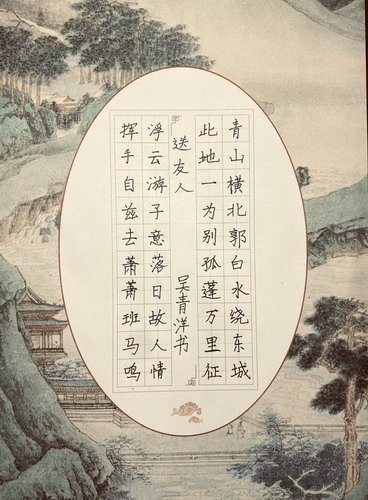 青山横北郭白水绕东城
此地一为别孤蓬万里征
送友人 吴青洋书
浮云游子意落日故人情
挥手自兹去萧萧班马鸣